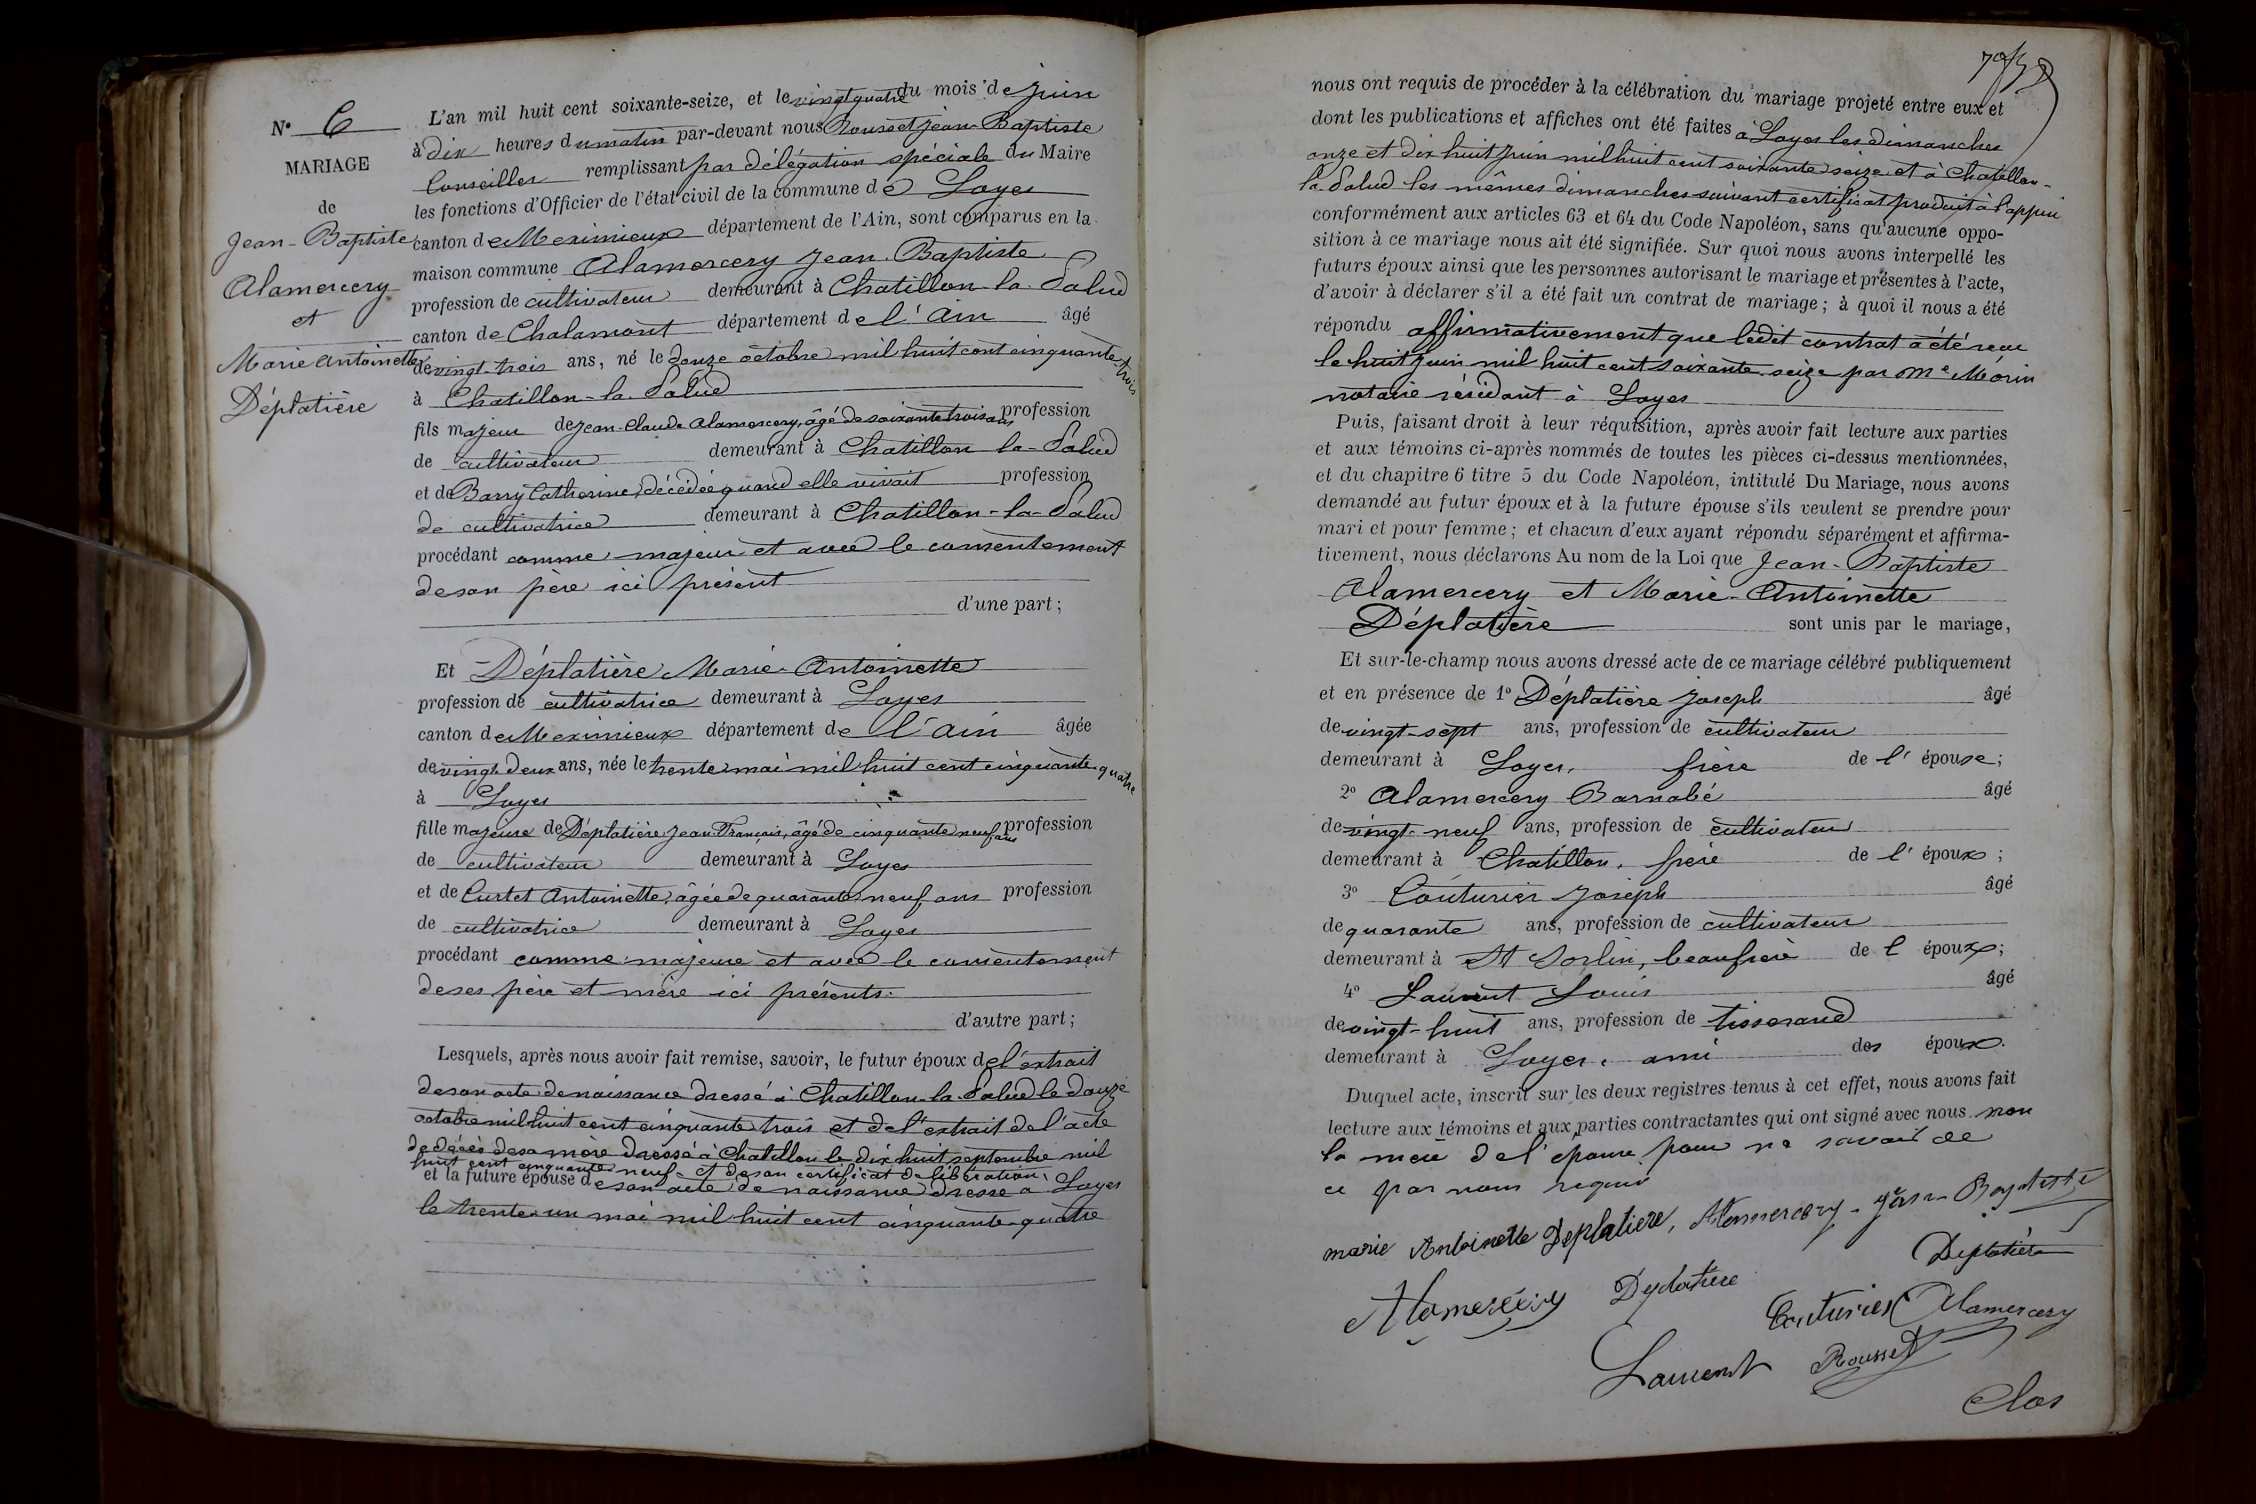 N° 6
MARIAGE
de
Jean-Baptiste
Alamercery
et
Marie Antoinette
Déplatière
L'an mil huit cent soixante-seize, et le vingt quatre du mois de juin
à dix heures du matin par-devant nous Rousset Jean-Baptiste
Conseiller remplissant par délégation spéciale du Maire
les fonctions d'Officier de l'état civil de la commune de Loyes
canton de Meximieux département de l'Ain, sont comparus en la
maison commune Alamercery Jean-Baptiste
profession de cultivateur demeurant à Chatillon-la-Palud
canton de Chalamont département de l'Ain âgé
de vingt-trois ans, né le douze octobre mil huit cent cinquante-trois
à Chatillon-la-Palud
fils majeur de Jean-Claude Alamercery, âgé de soixante trois ans profession
de cultivateur demeurant à Chatillon-la-Palud
et de Barry Catherine, décédée, quand elle vivait profession
de cultivatrice demeurant à Chatillon-la-Palud
procédant comme majeur et avec le consentement
de son père ici présent
d'une part;
Et Déplatière Marie-Antoinette
profession de cultivatrice demeurant à Loyes
canton de Meximieux département de l'Ain âgée
de vingt-deux ans, née le trente mai mil huit cent cinquante-quatre
à Loyes
fille majeure de Déplatière Jean-François, âgé de cinquante neuf ans profession
de cultivateur demeurant à Loyes
et de Curtet Antoinette, âgée de quarante neuf ans profession
de cultivatrice demeurant à Loyes
procédant comme majeure et avec le consentement
de ses père et mère ici présents.
d'autre part;
Lesquels, après nous avoir fait remise, savoir, le futur époux de l'extrait
de son acte de naissance dressé à Chatillon-la-Palud le douze
octobre mil huit cent cinquante trois et de l'extrait de l'acte
de décès de sa mère dressé à Chatillon le dix huit septembre mil
huit cent cinquante neuf et de son certificat de libération,
et la future épouse de son acte de naissance dressé à Loyes
le trente-un mai mil huit cent cinquante-quatre
nous ont requis de procéder à la célébration du mariage projeté entre eux et
dont les publications et affiches ont été faites à Loyes les dimanches
onze et dix huit juin mil huit cent soixante seize et à Chatillon-
la-Palud les mêmes dimanches suivant certificat produit à l'appui
conformément aux articles 63 et 64 du Code Napoléon, sans qu'aucune oppo-
sition à ce mariage nous ait été signifiée. Sur quoi nous avons interpellé les
futurs époux ainsi que les personnes autorisant le mariage et présentes à l'acte,
d'avoir à déclarer s'il a été fait un contrat de mariage; à quoi il nous a été
répondu affirmativement que ledit contrat a été reçu
le huit juin mil huit cent soixante-seize par Me Morin
notaire résidant à Loyes
Puis, faisant droit à leur réquisition, après avoir fait lecture aux parties
et aux témoins ci-après nommés de toutes les pièces ci-dessus mentionnées,
et du chapitre 6 titre 5 du Code Napoléon, intitulé Du Mariage, nous avons
demandé au futur époux et à la future épouse s'ils veulent se prendre pour
mari et pour femme; et chacun d'eux ayant répondu séparément et affirma-
tivement, nous déclarons Au nom de la Loi que Jean-Baptiste
Alamercery et Marie-Antoinette
Déplatière sont unis par le mariage,
Et sur-le-champ nous avons dressé acte de ce mariage célébré publiquement
et en présence de 1° Déplatière Joseph âgé
de vingt-sept ans, profession de cultivateur
demeurant à Loyes, frère de l'épouse;
2° Alamercery Barnabé âgé
de vingt-neuf ans, profession de cultivateur
demeurant à Chatillon, frère de l'époux;
3° Couturier Joseph âgé
de quarante ans, profession de cultivateur
demeurant à St Sorlin, beaufrère de l époux;
4° Laurent Louis âgé
de vingt-huit ans, profession de tisserand
demeurant à Loyes, ami des époux.
Duquel acte, inscrit sur les deux registres tenus à cet effet, nous avons fait
lecture aux témoins et aux parties contractantes qui ont signé avec nous non
la mère de l'épouse pour ne savoir de
ce par nous requis
marie Antoinette Deplatiere, Alamercery-Jean Baptiste
Deplatière
Alamercery Deplatiere
Couturier Alamercery
Laurent Rousset
Clos